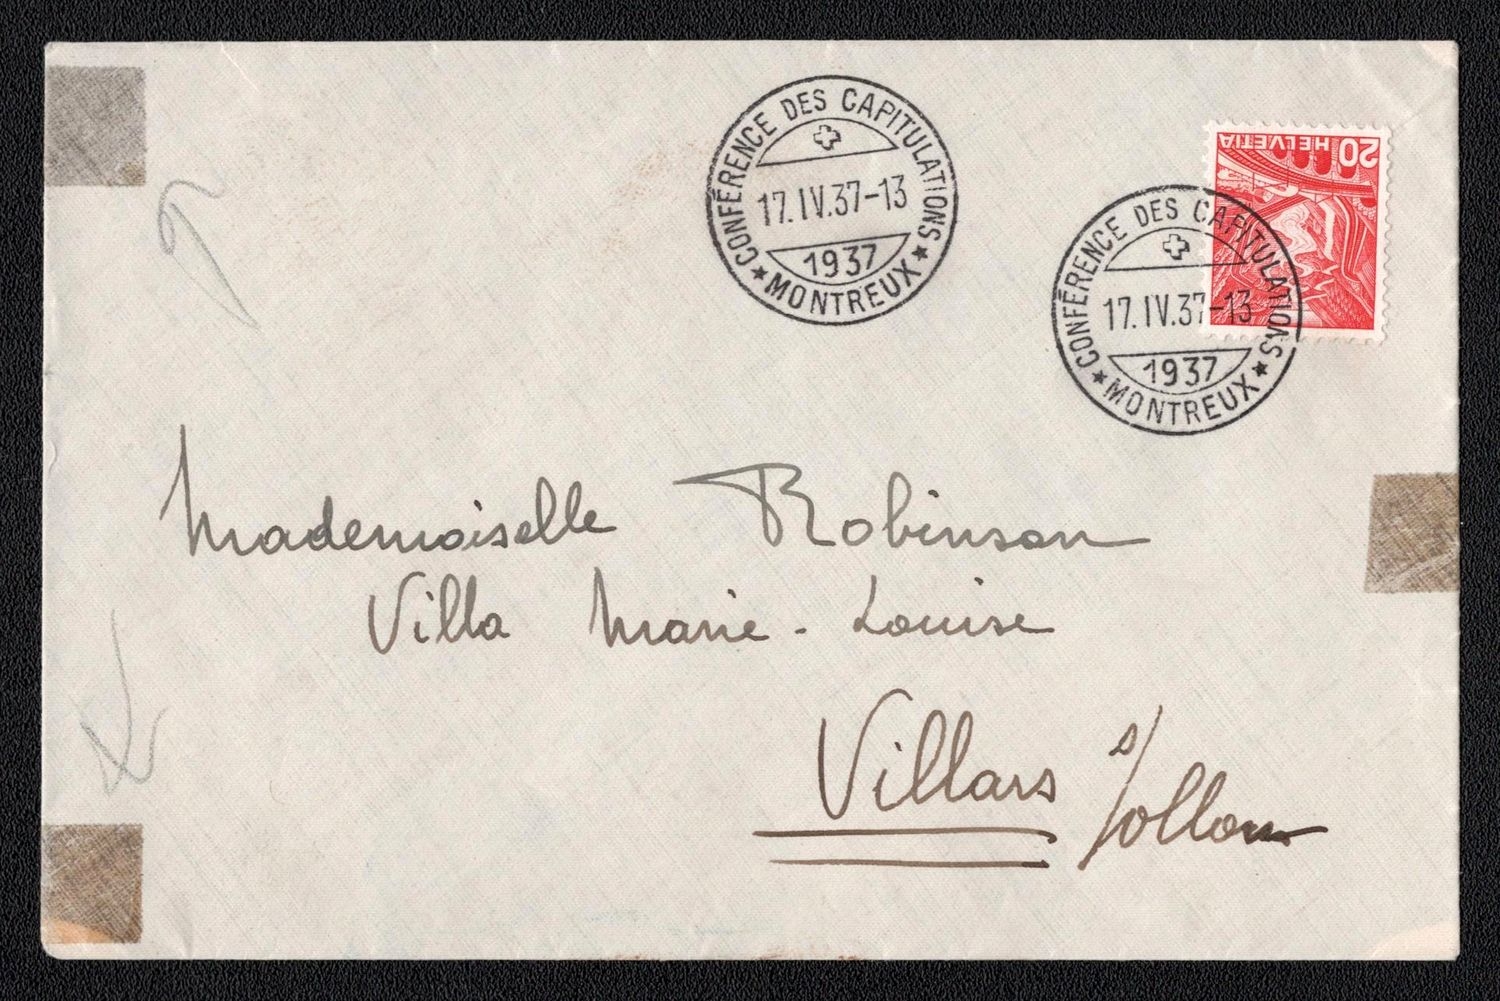 CONFÉRENCE DES CAPITULATIONS
17.IV.37-13
1937
★ MONTREUX ★
20 HELVETIA
CONFÉRENCE DES CAPITULATIONS
17.IV.37-13
1937
★ MONTREUX ★
Mademoiselle Robinson
Villa Marie-Louise
Villars s/Ollon